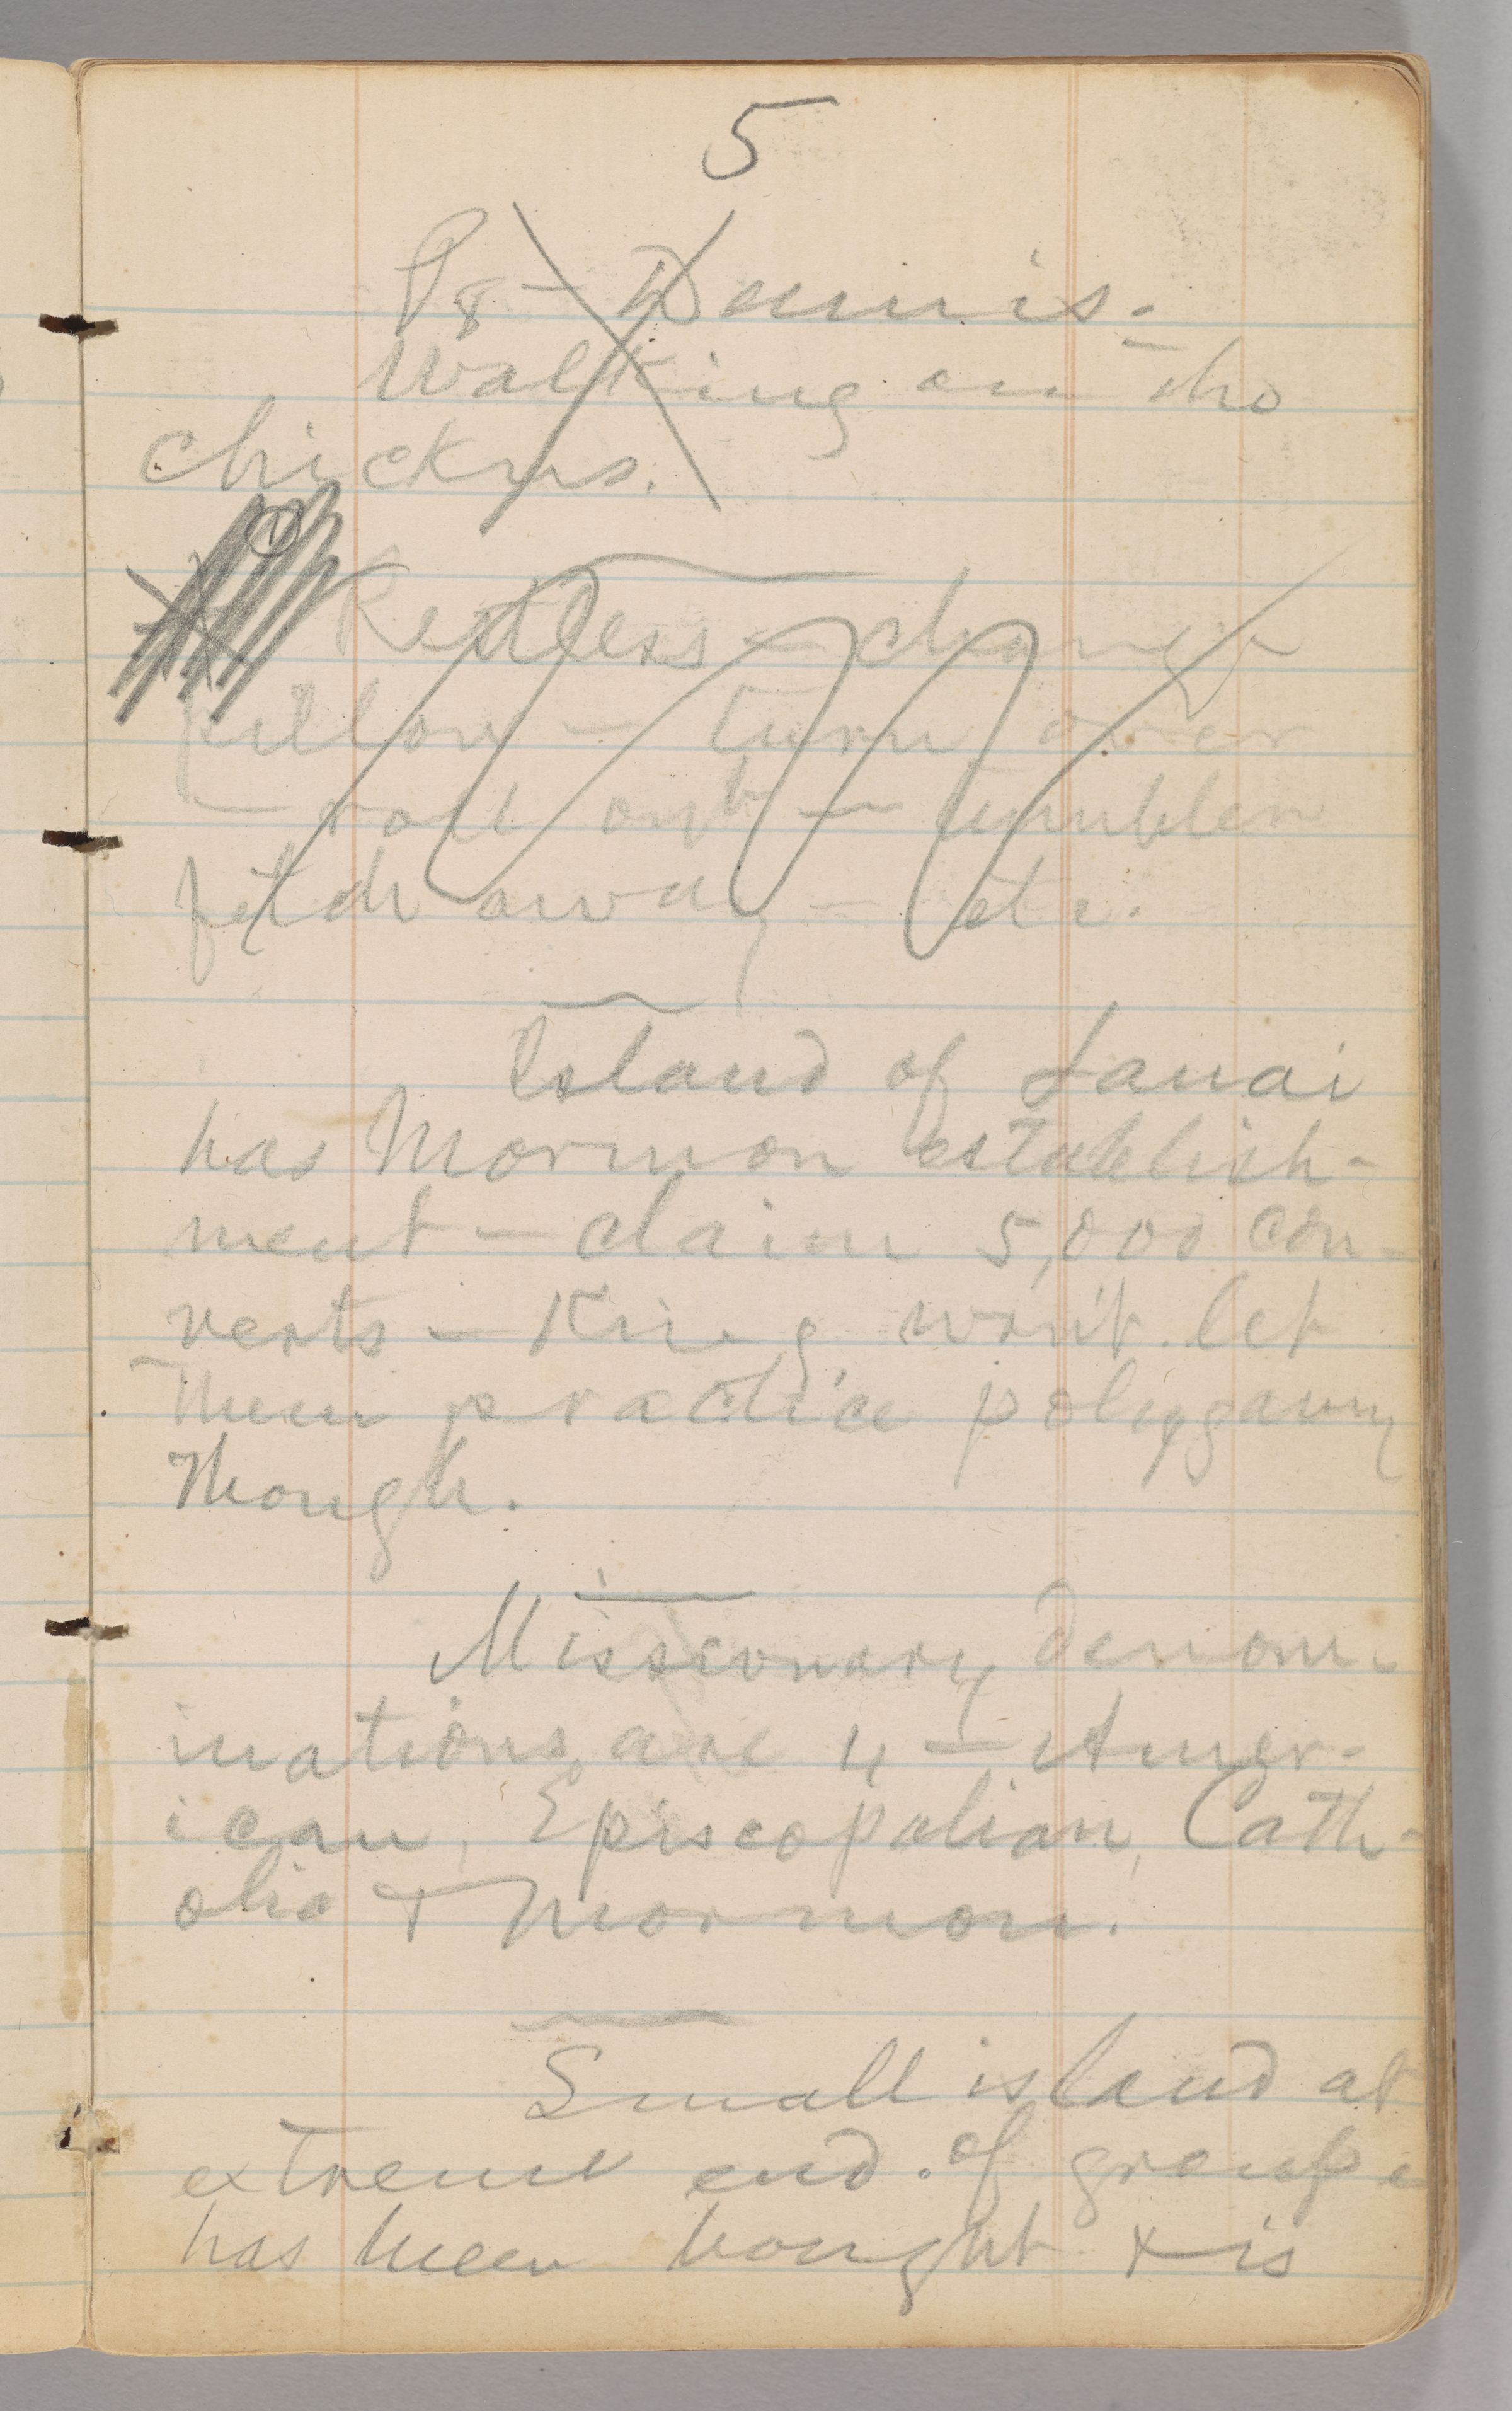 5
P8 – Dennis.
Walking on the
chickns.
Restless – change
pillow – turn over
– roll out – tumblen
fetch away – etc.
Island of Lanai
has Mormon establish-
ment – claim 5,000 con-
verts – King won't let
them practice poligamy
though.
Missionary denom-
inations are 4 – Amer-
ican, Episcopalian, Cath-
olic & Mormon.
Small island at
extreme end of group
has been bought & is